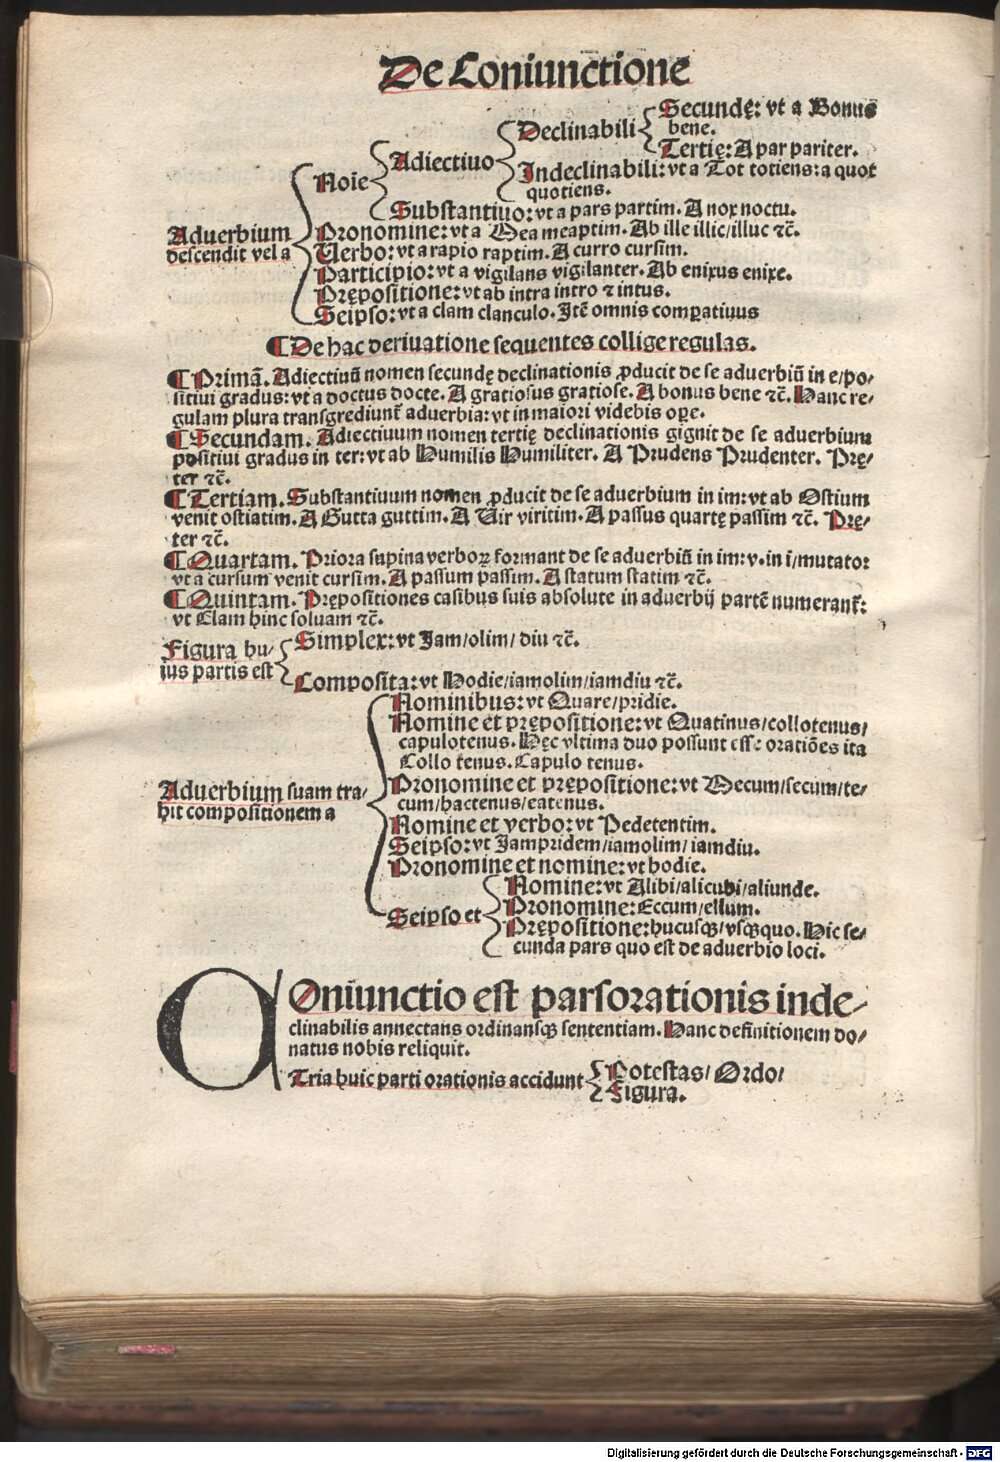 De Coniunctione
Secundę: vt a Bonus
bene.
Declinabili
Tertię: A par pariter.
Adiectiuo
Indeclinabili: vt a Tot totiens: a quot
quotiens.
Noīe
Substantiuo: vt a pars partim. A nox noctu.
Aduerbium
descendit vel a
Pronomine: vt a Mea meaptim. Ab ille illic/illuc ⁊c̄.
Verbo: vt a rapio raptim. A curro cursim.
Participio: vt a vigilans vigilanter. Ab enixus enixe.
Prępositione: vt ab intra intro ⁊ intus.
Seipso: vt a clam clanculo. Itē omnis comꝑatiuus
¶ De hac deriuatione sequentes collige regulas.
¶ Primā. Adiectiuū nomen secundę declinationis ꝓducit de se aduerbiū in e/po/
sitiui gradus: vt a doctus docte. A gratiosus gratiose. A bonus bene ⁊c̄. Hanc re/
gulam plura transgrediunt᷑ aduerbia: vt in maiori videbis oꝑe.
¶ Secundam. Adiectiuum nomen tertię declinationis gignit de se aduerbium
positiui gradus in ter: vt ab Humilis Humiliter. A Prudens Prudenter. Prę/
ter ⁊c̄.
¶ Tertiam. Substantiuum nomen ꝓducit de se aduerbium in im: vt ab Ostium
venit ostiatim. A Gutta guttim. A Vir viritim. A passus quartę passim ⁊c̄. Prę/
ter ⁊c̄.
¶ Quartam. Priora supina verboꝝ formant de se aduerbiū in im: v. in i/mutato:
vt a cursum venit cursim. A passum passim. A statum statim ⁊c̄.
¶ Quintam. Prępositiones casibus suis absolute in aduerbij partē numerant᷑:
vt Clam hinc soluam ⁊c̄.
Figura hu/
ius partis est
Simplex: vt Jam/olim/ diu ⁊c̄.
Composita: vt Hodie/iamolim/iamdiu ⁊c̄.
Nominibus: vt Quare/pridie.
Nomine et prępositione: vt Quatinus/collotenus/
capulotenus. Hęc vltima duo possunt esse oratiōes ita
Collo tenus. Capulo tenus.
Aduerbium suam tra/
hit compositionem a
Pronomine et prępositione: vt Mecum/secum/te/
cum/hactenus/eatenus.
Nomine et verbo: vt Pedetentim.
Seipso: vt Jampridem/iamolim/iamdiu.
Pronomine et nomine: vt hodie.
Nomine: vt Alibi/alicubi/aliunde.
Seipso et
Pronomine: Eccum/ellum.
Prępositione: hucusqꝫ/vsqꝫquo. Hic se/
cunda pars quo est de aduerbio loci.
COniunctio est pars orationis inde/
clinabilis annectans ordinansqꝫ sententiam. Hanc definitionem do/
natus nobis reliquit.
Tria huic parti orationis accidunt
Potestas/ Ordo/
Figura.
Digitalisierung gefördert durch die Deutsche Forschungsgemeinschaft - DFG